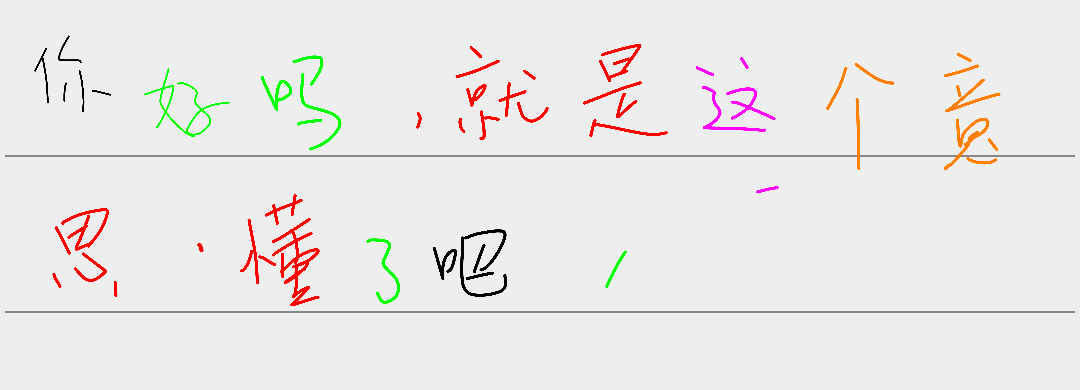 你好吗,就是这个意
思.懂了吧